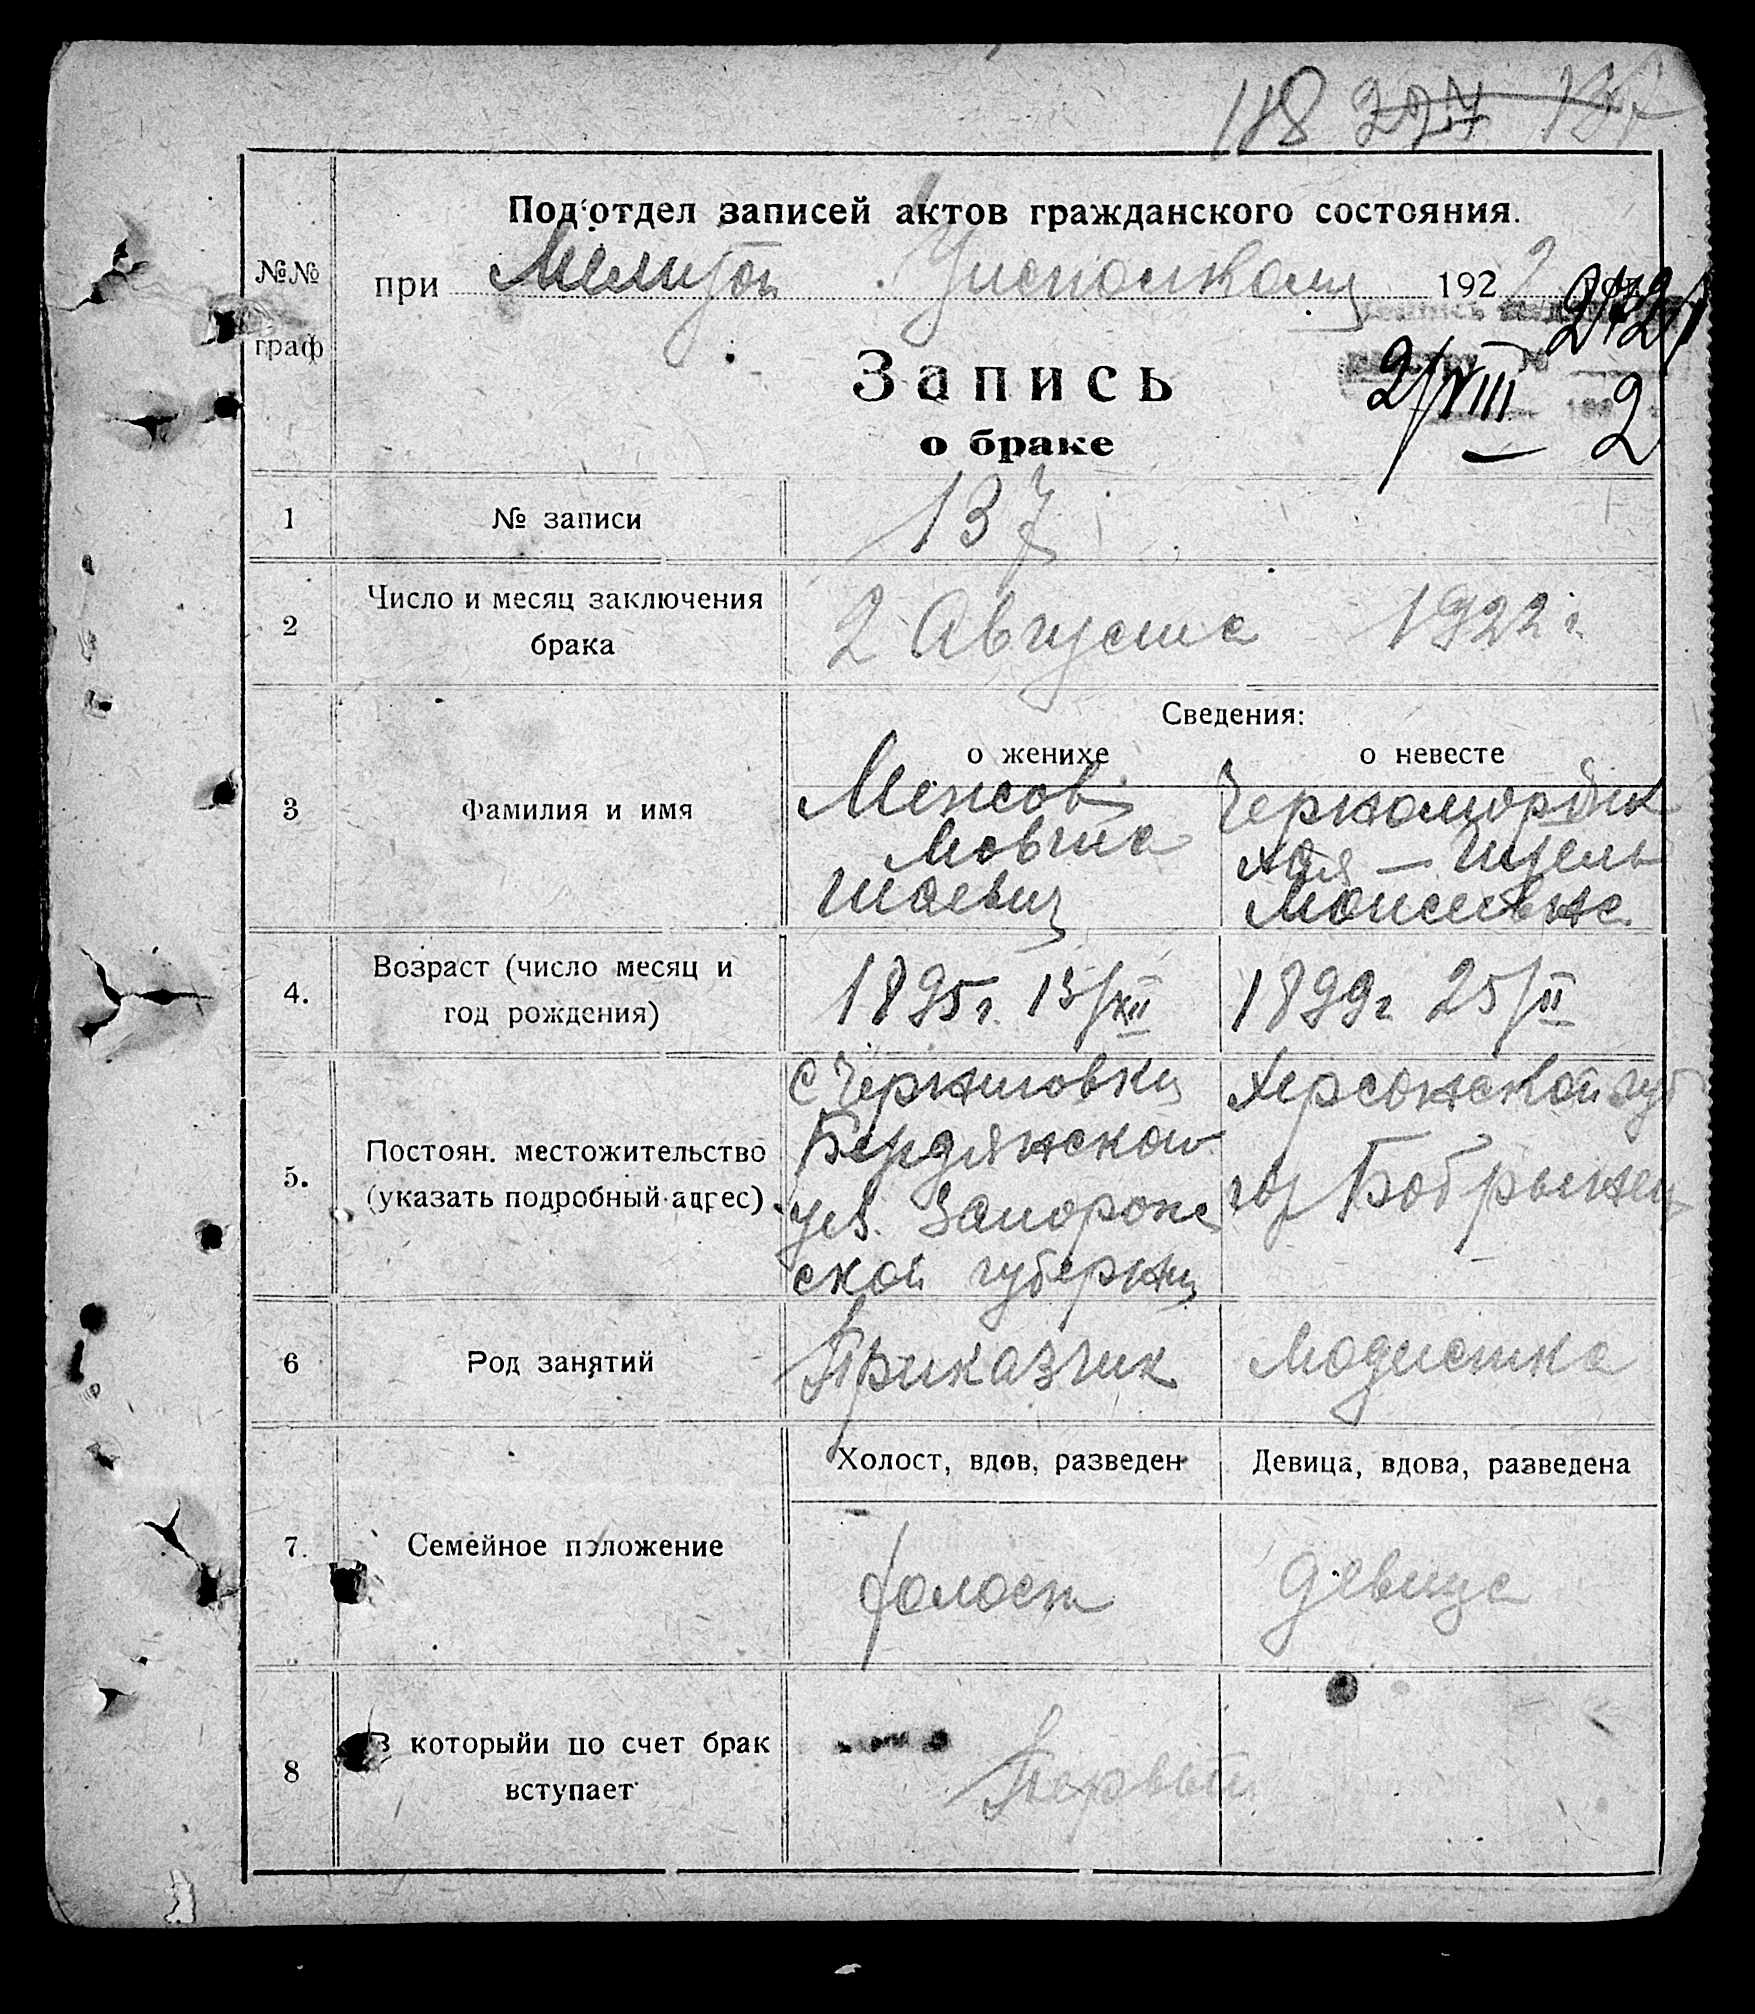 118 227 137
Под'отдел записей актов гражданского состояния.
№№ граф
при Мелитоп Уисполкому 1922 год
2/VIII 2
Запись
о браке
1 № записи 137
2 Число и месяц заключения брака 2 Августа 1922 г
Сведения:
о женихе о невесте
3 Фамилия и имя
Менсов
Мовша
Шаевич
Черномордик
ная — Шпель
Моисеевна
4. Возраст (число месяц и
год рождения)
1895 г. 13/XII 1899 г 25/II
5. Постоян. местожительство
(указать подробный адрес)
с Черниговки
Бердянского
уез. Запорож
ской губернии
Херсонской губ
гор Бобринец
6 Род занятий Приказчик Модистка
Холост, вдов, разведен Девица, вдова, разведена
7. Семейное положение холост девица
8 В которыйи по счет брак
вступает
Первый